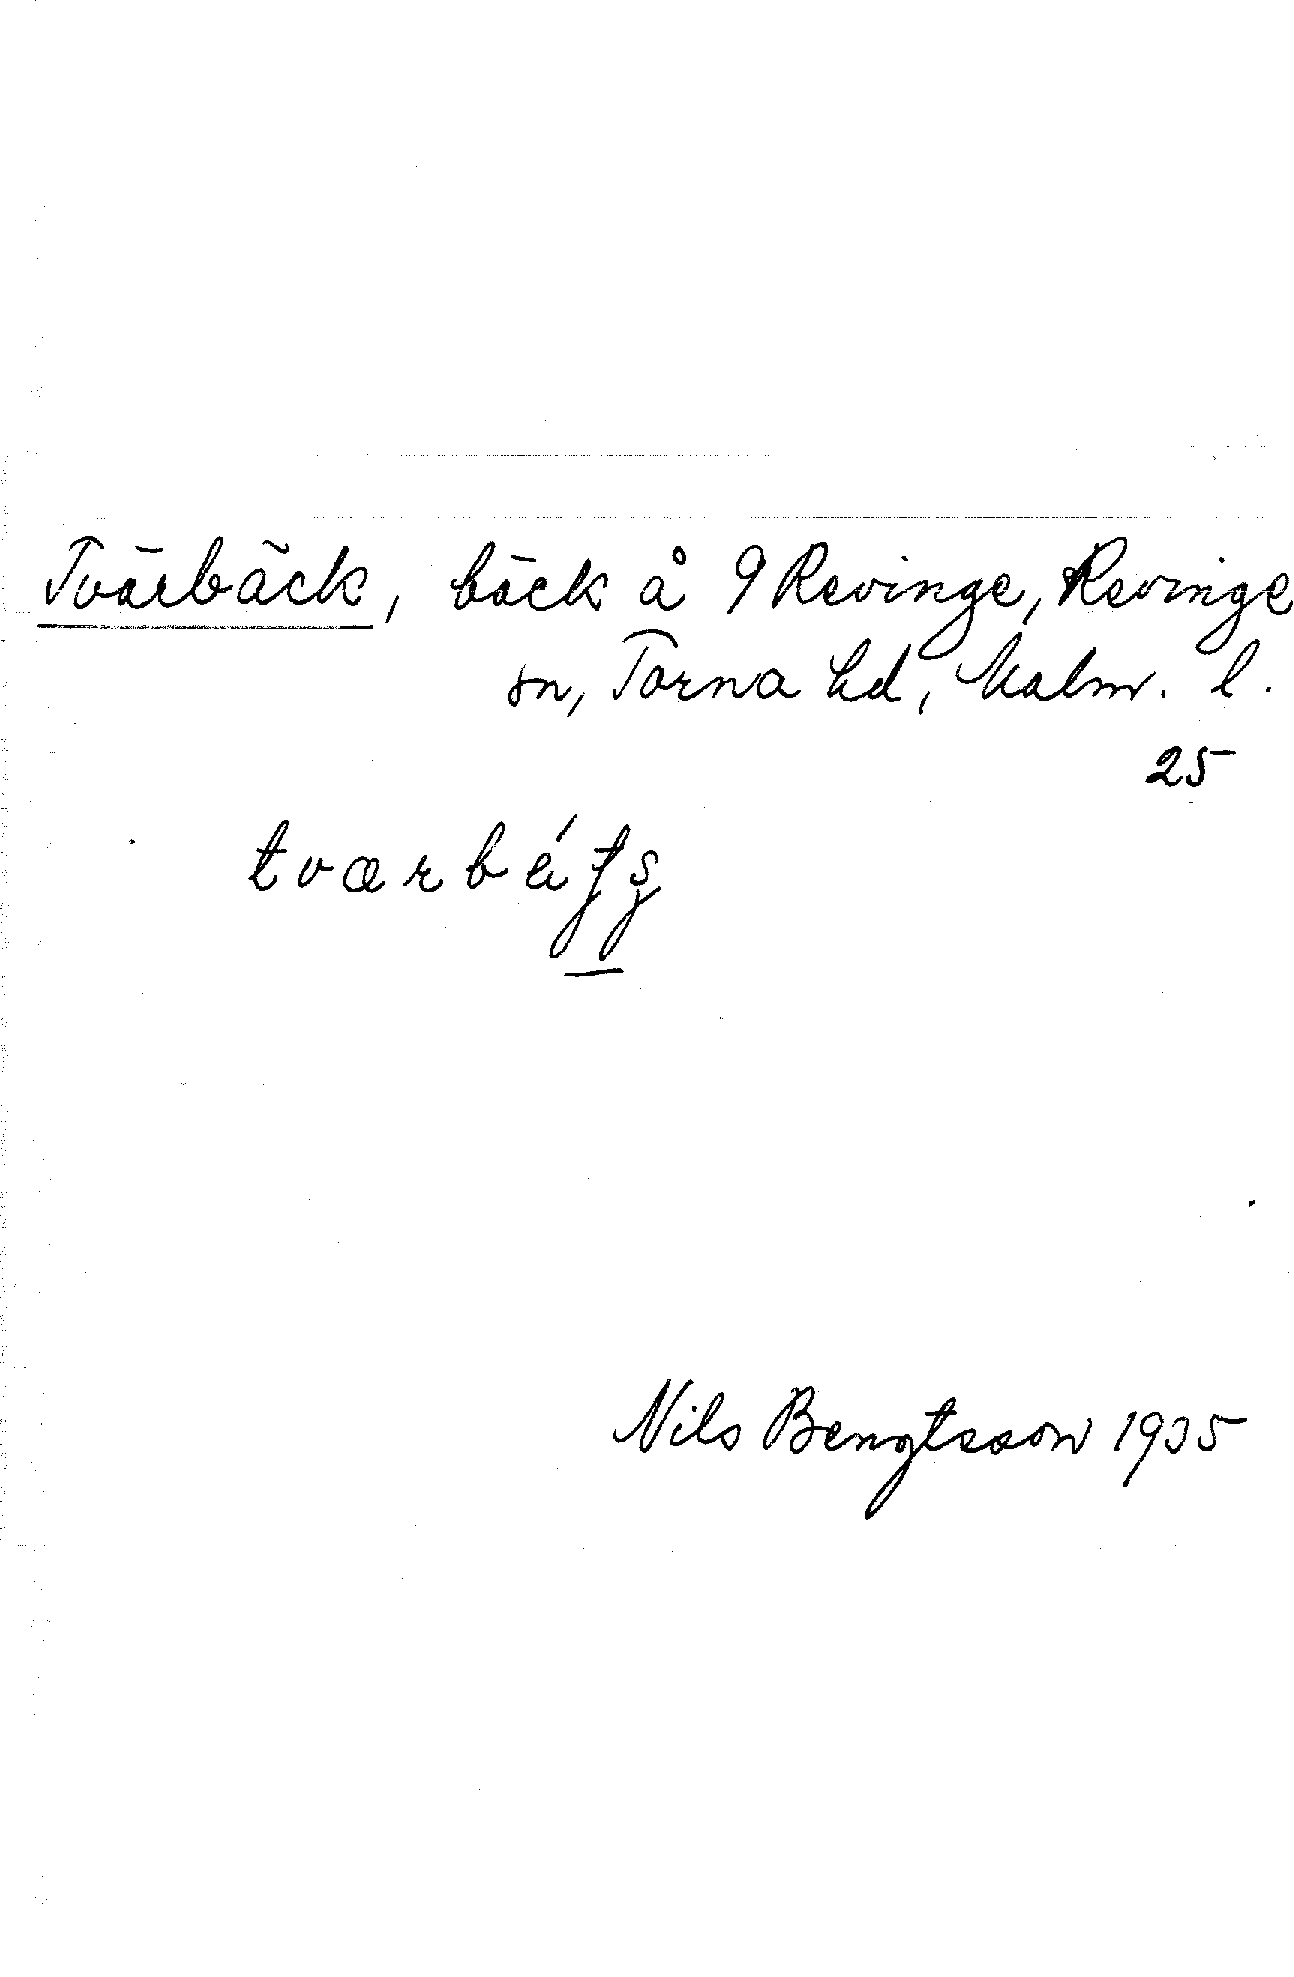 Tvärbäck, bäck å 9 Revinge, Revinge
sn, Torna hd, Malm. l.
25
Nils Bengtsson 1935